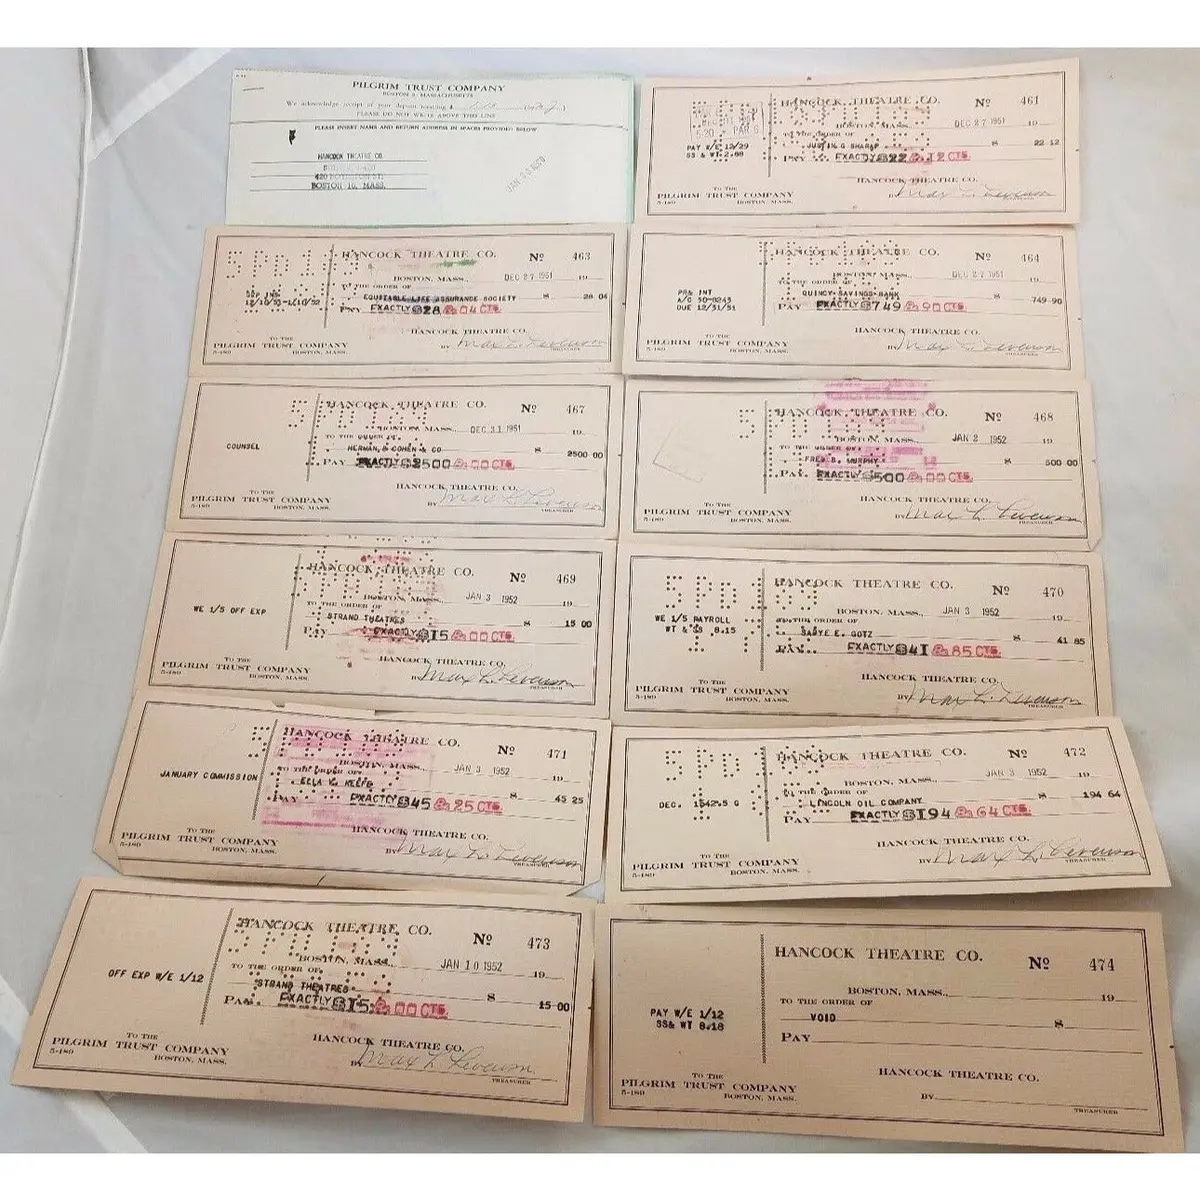 PILGRIM TRUST COMPANY
BOSTON 9, MASSACHUSETTS
We acknowledge receipt of your deposit totaling $
PLEASE DO NOT WRITE ABOVE THIS LINE
PLEASE INSERT NAME AND RETURN ADDRESS IN SPACES PROVIDED BELOW
HANCOCK THEATRE CO.
BOSTON 16, MASS.
HANCOCK THEATRE CO. No 461
BOSTON, MASS. DEC 27 1951 19
TO THE ORDER OF
PAY W/E 12/29 JUSTIN G SHARAF $ 22 12
SS & WT 2.88 PAY EXACTLY $22 & 12 CTS
HANCOCK THEATRE CO.
TO THE
PILGRIM TRUST COMPANY BY Max L. Levenson
5-180 BOSTON, MASS. TREASURER
HANCOCK THEATRE CO. No 463
BOSTON, MASS., DEC 27 1951 19
TO THE ORDER OF
EQUITABLE LIFE ASSURANCE SOCIETY $ 28 04
PAY EXACTLY $28 & 04 CTS
HANCOCK THEATRE CO.
TO THE
PILGRIM TRUST COMPANY BY Max L. Levenson
5-180 BOSTON, MASS. TREASURER
HANCOCK THEATRE CO. No 464
BOSTON, MASS., DEC 27 1951 19
TO THE ORDER OF
PR& INT QUINCY SAVINGS BANK $ 749-90
A/C 50-8243
DUE 12/31/51 PAY EXACTLY $749 & 90 CTS
HANCOCK THEATRE CO.
TO THE
PILGRIM TRUST COMPANY BY Max L. Levenson
5-180 BOSTON, MASS. TREASURER
HANCOCK THEATRE CO. No 467
BOSTON, MASS., DEC 31 1951 19
TO THE ORDER OF
COUNSEL HERMAN, & COHEN & CO $ 2500 00
PAY EXACTLY $2500 & 00 CTS
HANCOCK THEATRE CO.
TO THE
PILGRIM TRUST COMPANY BY Max L. Levenson
5-180 BOSTON, MASS. TREASURER
HANCOCK THEATRE CO. No 468
BOSTON, MASS., JAN 2 1952 19
TO THE ORDER OF
FRED B. MURPHY $ 500 00
PAY EXACTLY $500 & 00 CTS
HANCOCK THEATRE CO.
TO THE
PILGRIM TRUST COMPANY BY Max L. Levenson
5-180 BOSTON, MASS. TREASURER
HANCOCK THEATRE CO. No 469
BOSTON, MASS., JAN 3 1952 19
TO THE ORDER OF
WE 1/5 OFF EXP STRAND THEATRES $ 15 00
PAY EXACTLY $15 & 00 CTS
HANCOCK THEATRE CO.
TO THE
PILGRIM TRUST COMPANY BY Max L. Levenson
5-180 BOSTON, MASS. TREASURER
HANCOCK THEATRE CO. No 470
BOSTON, MASS., JAN 3 1952 19
TO THE ORDER OF
WE 1/5 PAYROLL SADYE E. GOTZ $ 41 85
WT & SS 8.15 PAY EXACTLY $41 & 85 CTS
HANCOCK THEATRE CO.
TO THE
PILGRIM TRUST COMPANY BY Max L. Levenson
5-180 BOSTON, MASS. TREASURER
HANCOCK THEATRE CO. No 471
BOSTON, MASS., JAN 3 1952 19
TO THE ORDER OF
JANUARY COMMISSION $ 45 25
PAY EXACTLY $45 & 25 CTS
HANCOCK THEATRE CO.
TO THE
PILGRIM TRUST COMPANY BY Max L. Levenson
5-180 BOSTON, MASS. TREASURER
HANCOCK THEATRE CO. No 472
BOSTON, MASS., JAN 3 1952 19
TO THE ORDER OF
DEC. LINCOLN OIL COMPANY $ 194 64
PAY EXACTLY $194 & 64 CTS
HANCOCK THEATRE CO.
TO THE
PILGRIM TRUST COMPANY BY Max L. Levenson
5-180 BOSTON, MASS. TREASURER
HANCOCK THEATRE CO. No 473
BOSTON, MASS., JAN 10 1952 19
TO THE ORDER OF
OFF EXP W/E 1/12 STRAND THEATRES $ 15 00
PAY EXACTLY $15 & 00 CTS
HANCOCK THEATRE CO.
TO THE
PILGRIM TRUST COMPANY BY Max L. Levenson
5-180 BOSTON, MASS. TREASURER
HANCOCK THEATRE CO. No 474
BOSTON, MASS., 19
TO THE ORDER OF
PAY W/E 1/12 VOID $
SS& WT 8.18 PAY
HANCOCK THEATRE CO.
TO THE
PILGRIM TRUST COMPANY BY
5-180 BOSTON, MASS. TREASURER